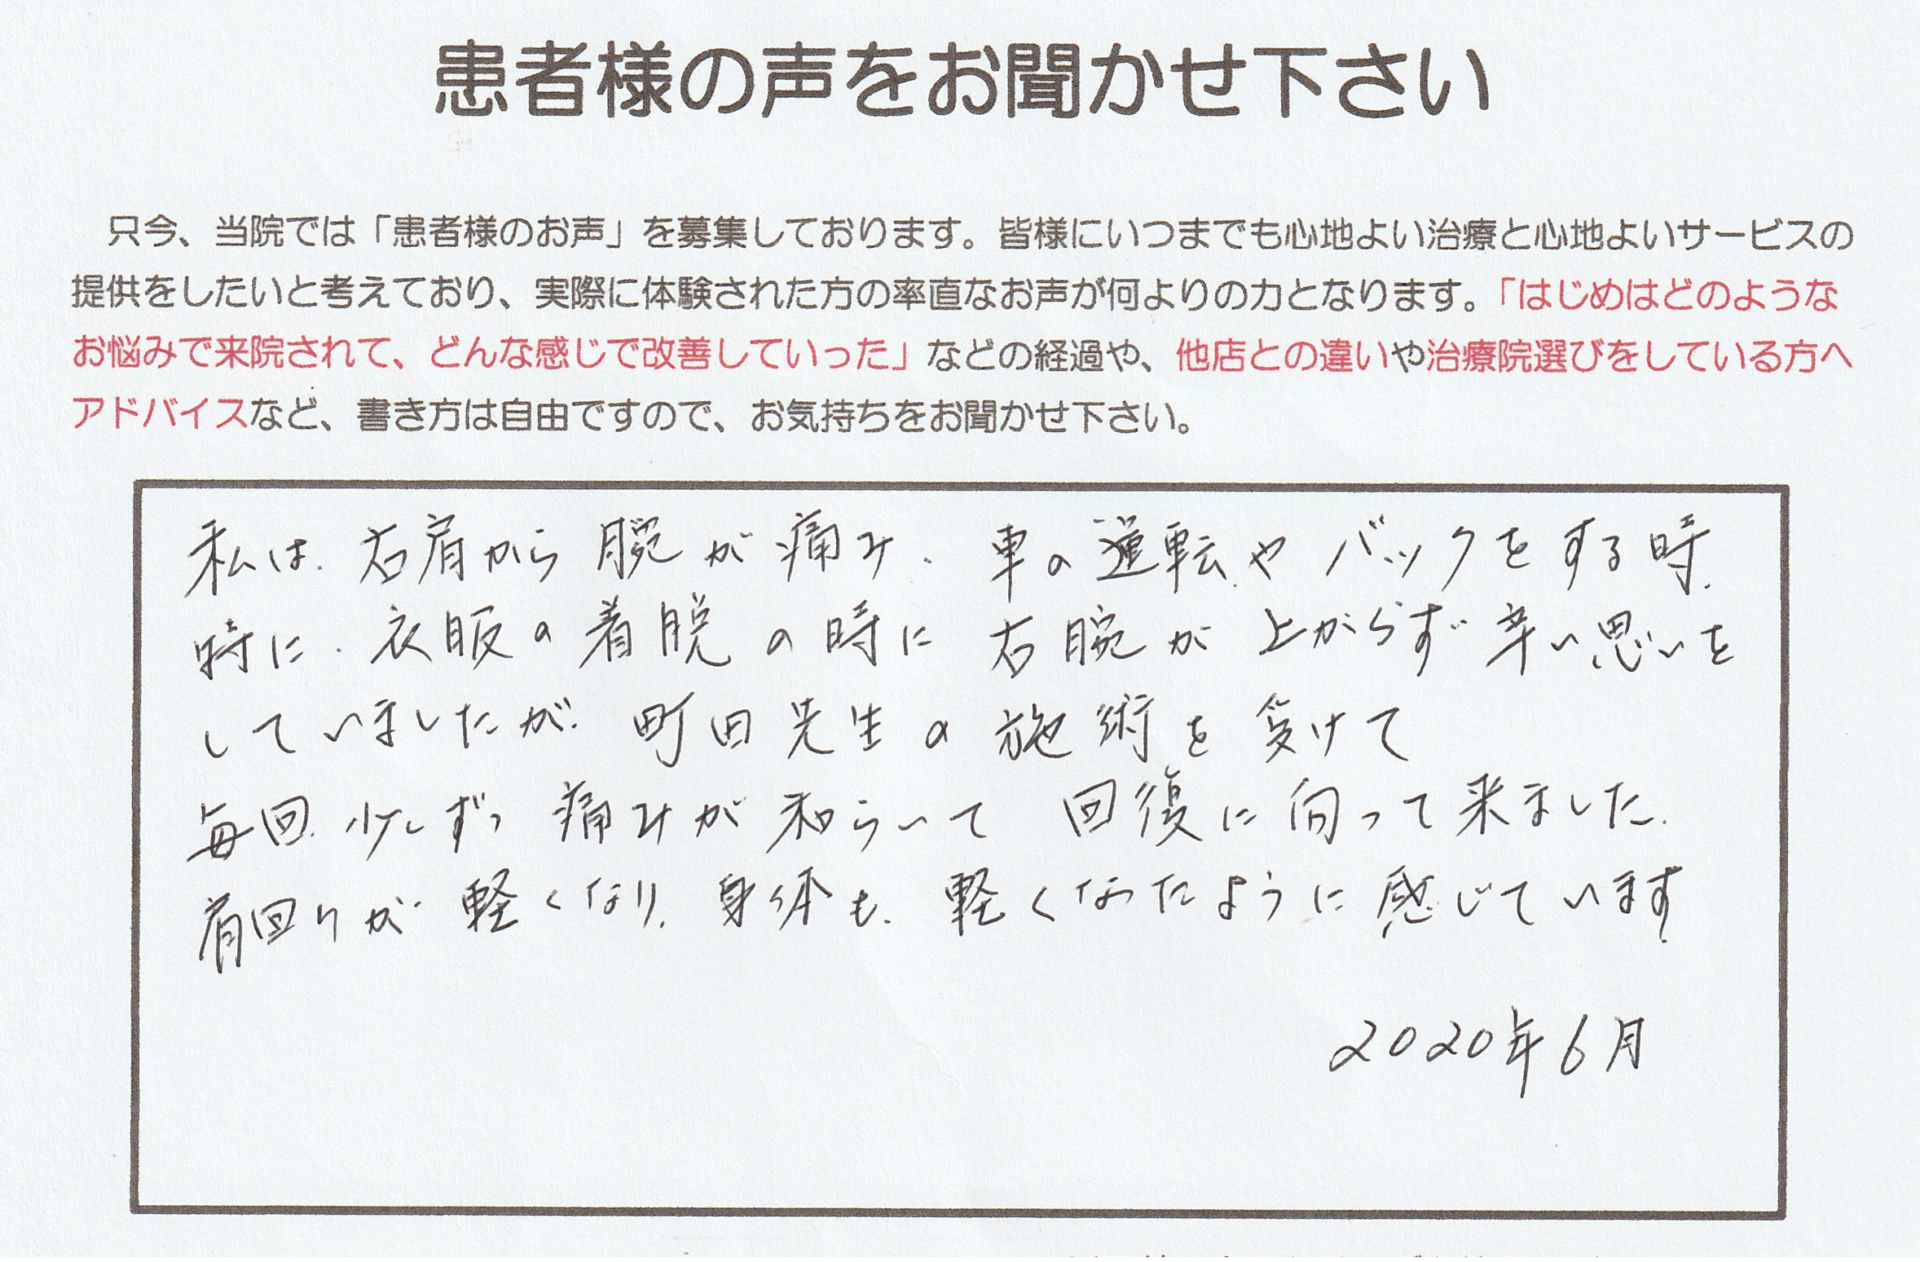 患者様の声をお聞かせ下さい
只今、当院では「患者様のお声」を募集しております。皆様にいつまでも心地よい治療と心地よいサービスの
提供をしたいと考えており、実際に体験された方の率直なお声が何よりの力となります。「はじめはどのような
お悩みで来院されて、どんな感じで改善していった」などの経過や、他店との違いや治療院選びをしている方へ
アドバイスなど、書き方は自由ですので、お気持ちをお聞かせ下さい。
私は、右肩から腕が痛み、車の運転やバックをする時、
特に、衣服の着脱の時に右腕が上がらず辛い思いを
していましたが、町田先生の施術を受けて
毎回、少しずつ痛みが和らいて回復に向って来ました。
肩回りが軽くなり、身体も、軽くなったように感じています。
2020年6月